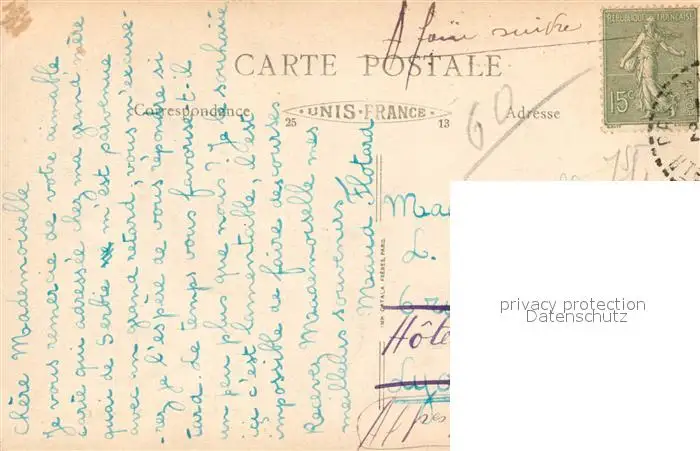 A faire suivre
RÉPUBLIQUE FRANÇAISE
15c
CARTE POSTALE
Correspondance
UNIS-FRANCE
25
13
Adresse
60
Chère Mademoiselle
Je vous remercie de votre aimable
carte qui adressée chez ma grand'mère
quai de Serbie m'est parvenue
avec un grand retard, vous m'excuse-
rez je l'espère de vous répondre si
tard. Le temps vous favorise t-il
un peu plus que nous? Je le souhaite
ici c'est lamentable, il est
impossible de faire des courses
Recevez Mademoiselle mes
meilleurs souvenirs
Maud Flotard
IMP. CATALA FRÈRES, PARIS
L.
Hôte
privacy protection
Datenschutz